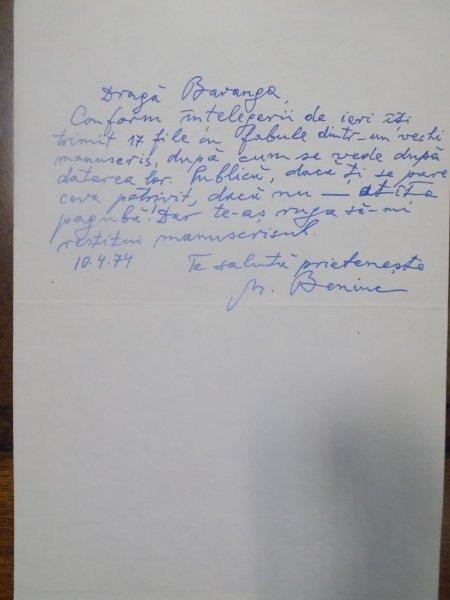 Dragă Baranga,
Conform întelegerii de ieri îți
trimit 17 file cu fabule dintr-un vechi
manuscris, după cum se vede după
datarea lor. Publică, dacă ți se pare
ceva potrivit, dacă nu — atîta
pagubă! Dar te-aș ruga să-mi
restitui manuscrisul.
10.4.74 Te salută prietenește
M. Beniuc